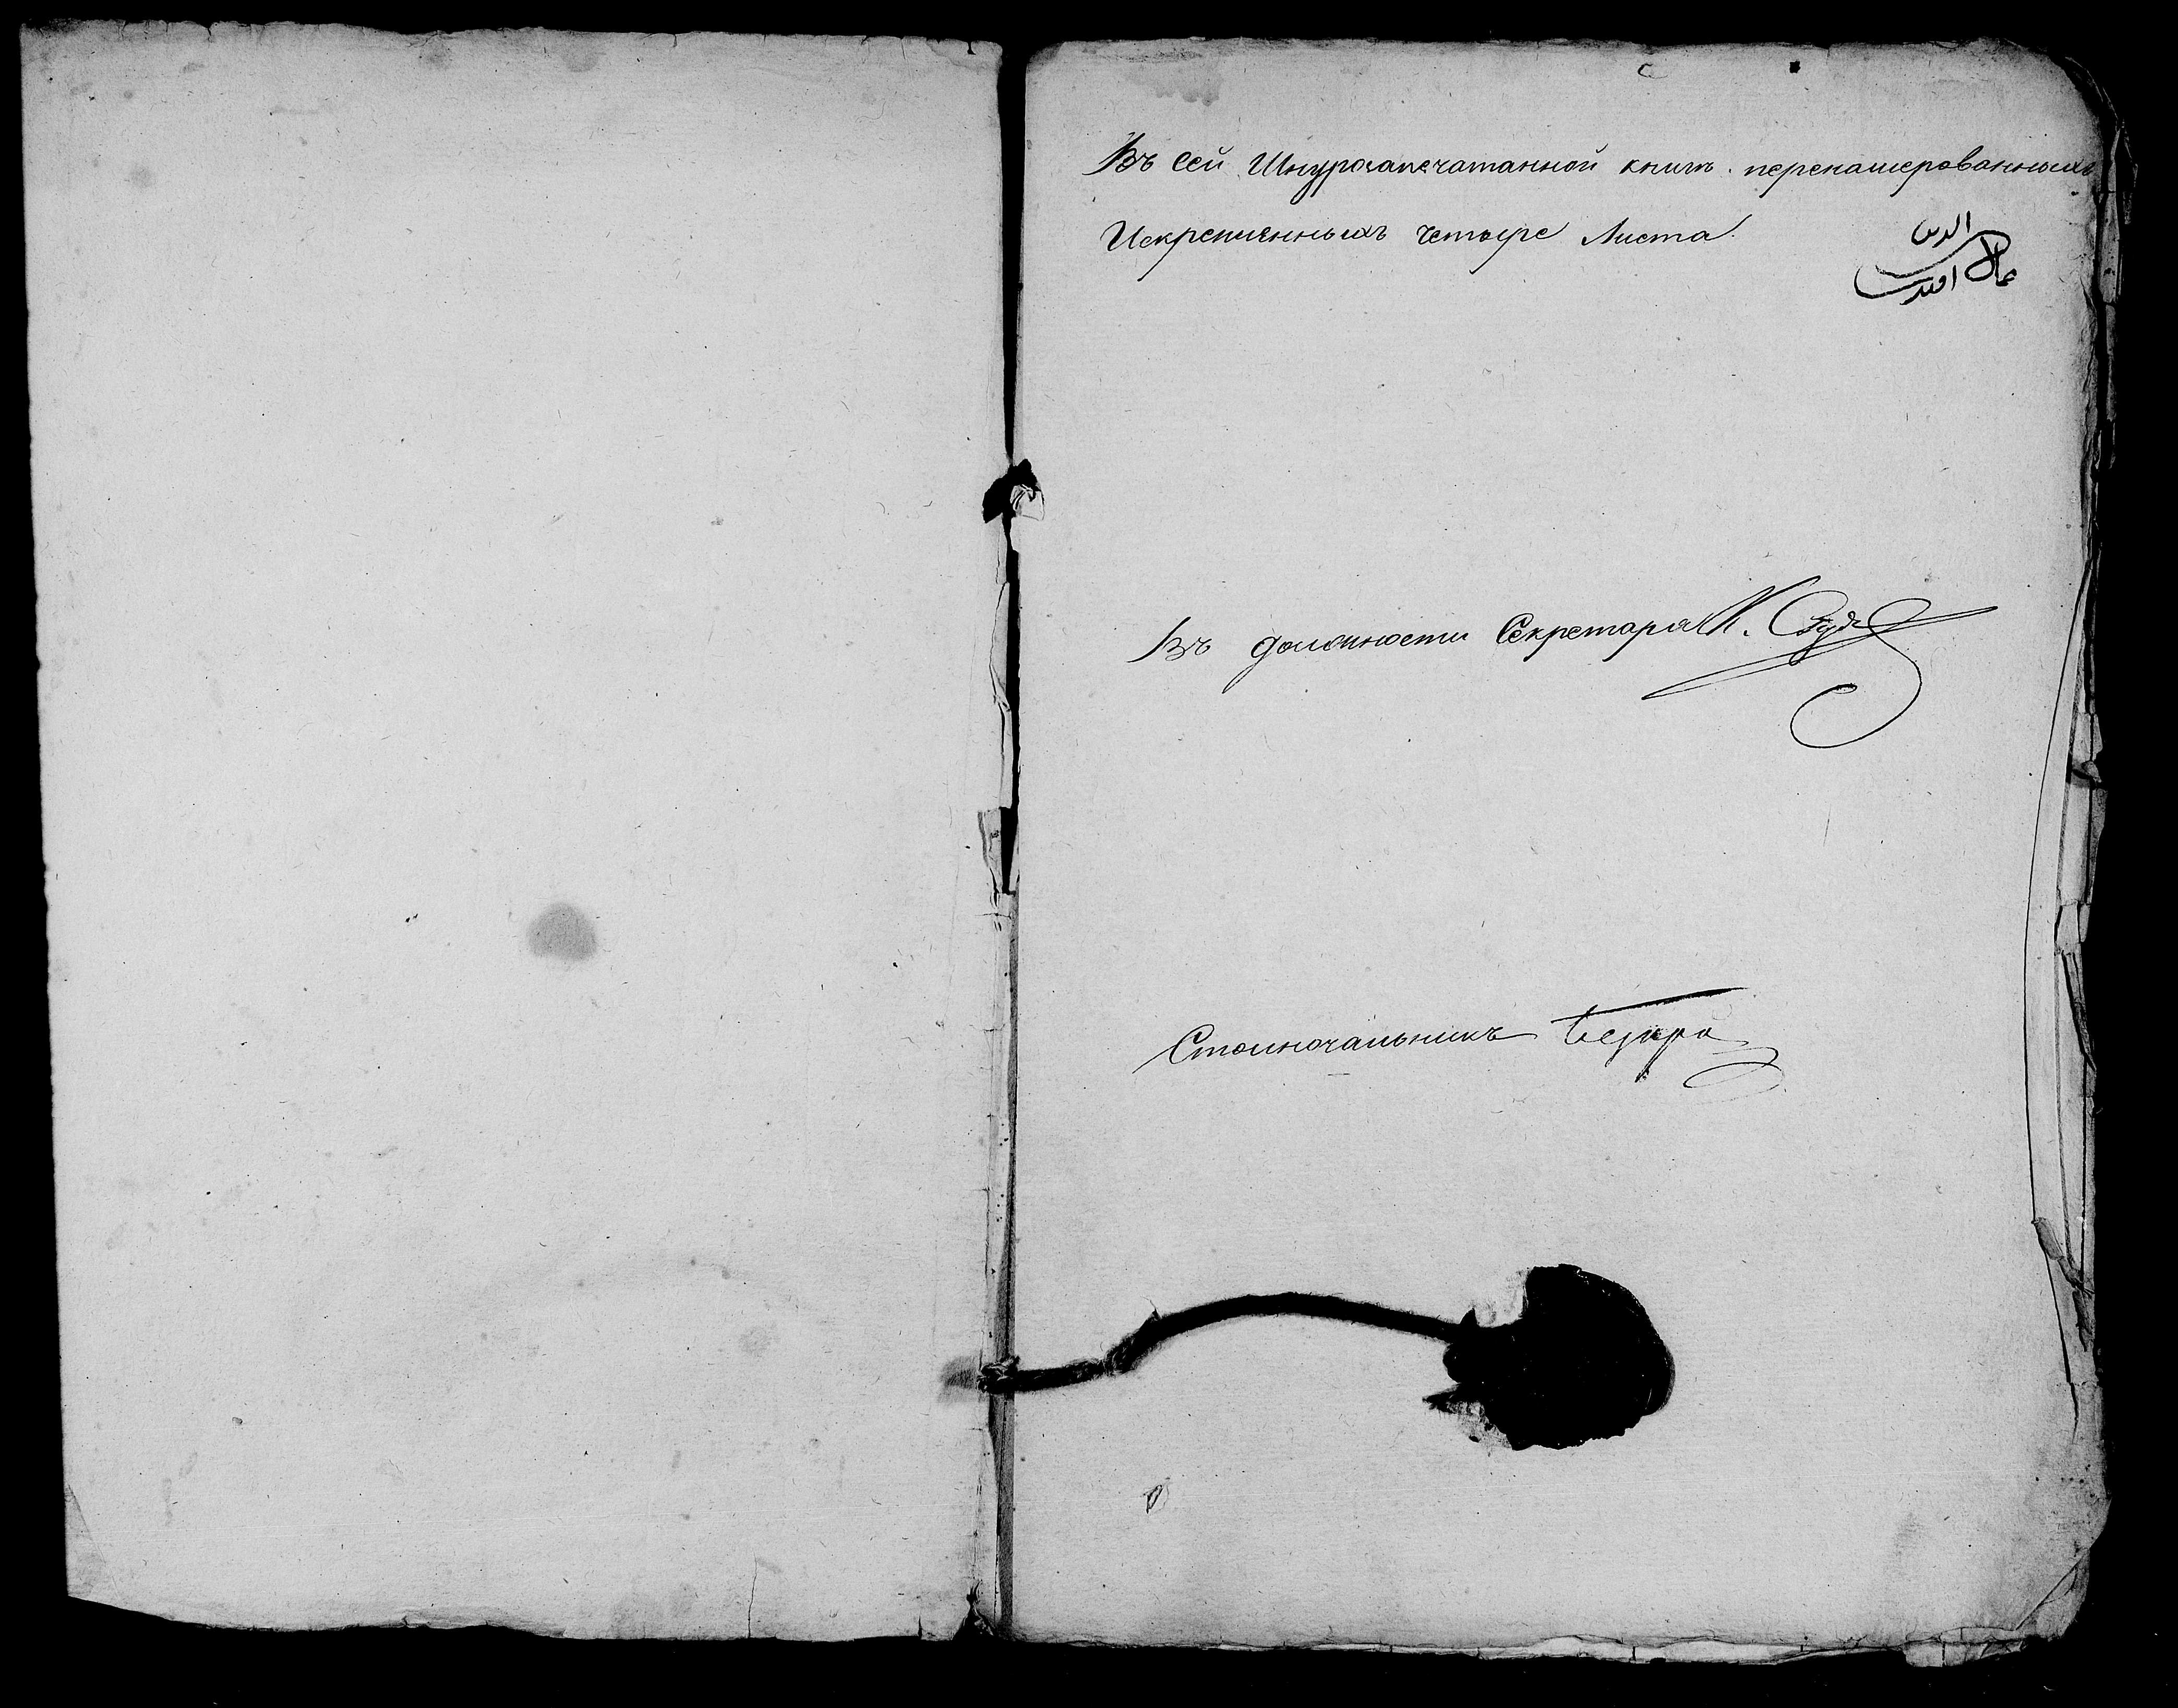 Въ сей Шнурозапечатанной книгѣ перенамерованныхъ
Искрепленныхъ четыре Листа.
Въ должности Секретаря К.
Столночальникъ